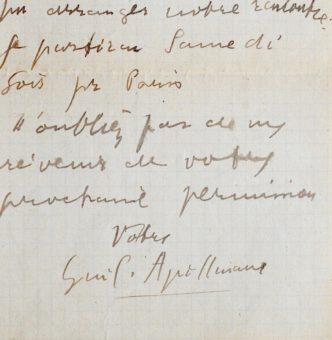 arranger notre rencontre
Je partirai Samedi
Soir pr Paris
N'oubliez pas de me
prévenir de votre
prochaine permission
Votre
Guil. Apollinaire